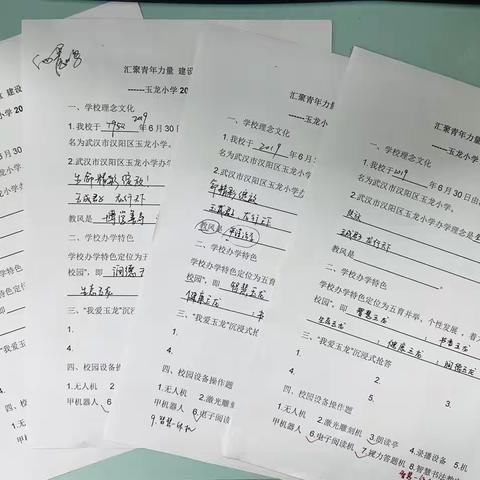 汇聚青年力量 建设
------玉龙小学 20
一、学校理念文化
2019
1.我校于 1954 年 6 月 30 日
名为武汉市汉阳区玉龙小学。
2.武汉市汉阳区玉龙小学办
生命精彩绽放!
玉成君子 龙行天下
教风是 博学善与
二、学校办学特色
学校办学特色定位为
校园”,即 润德玉
生态玉龙
三、“我爱玉龙”沉浸
1.
4.
四、校园设备操
1.无人机 2
甲机器人 6
汇聚青年力量 建
------玉龙小学
一、学校理念文化
1.我校于 2019 年 6 月 3
名为武汉市汉阳区玉龙小
2.武汉市汉阳区玉龙小学
命精彩绽放
玉成君子 龙行天下
教风是
二、学校办学特色
学校办学特色定位为五育
校园”,即 智慧玉龙
健康玉龙 ; 书
三、“我爱玉龙”沉浸式抢
1.
4.
四、校园设备操作题
1.无人机 2.激光雕刻
甲机器人 6.电子阅读
9.智慧
汇聚青年力量
------玉龙小
一、学校理念文化
1.我校于 2019 年 6 月 30 日由
名为武汉市汉阳区玉龙小学。
2.武汉市汉阳区玉龙小学办学理念是生
绽放
玉成君子 龙行天下
教风是
二、学校办学特色
学校办学特色定位为五育并举,个性发展,着力
校园”,即 智慧玉龙 ; 书香玉龙
生态玉龙 ; 健康玉龙 ; 润德玉龙
三、“我爱玉龙”沉浸式抢答
1. 2. 3.
4. 5.
四、校园设备操作题
1.无人机 2.激光雕刻机 3.朗读亭 4.录播设备 5.机
甲机器人 6.电子阅读机 7.视力答题机 8.智慧书法教